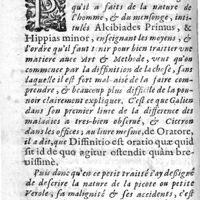 qu'il a faits de la nature de
l'homme, & du mensonge, inti-
tulés Alcibiades Primus, &
Hippias minor, enseignant les moyens, &
l'ordre qu'il faut tenir pour bien traitter une
matiere avec Art & Methode, veut qu'on
commence par la diffinition de la chose, sans
laquelle il est fort mal aisé de la faire com-
prendre, & beaucoup plus difficile de la pou-
voir clairement expliquer. C'est ce que Galien
dans son premier livre de la difference des
maladies a tres-bien observé, & Ciceron
dans les offices, au livre mesme, de Oratore,
il a dit, que Diffinitio est oratio quæ quid
sit id de quo agitur ostendit quàm bre-
vissimè.
Puis donc qu'en ce petit traité j'ay desseigné
de descrire la nature de la picote ou petite
Verole, sa malignité & ses accidents, c'est